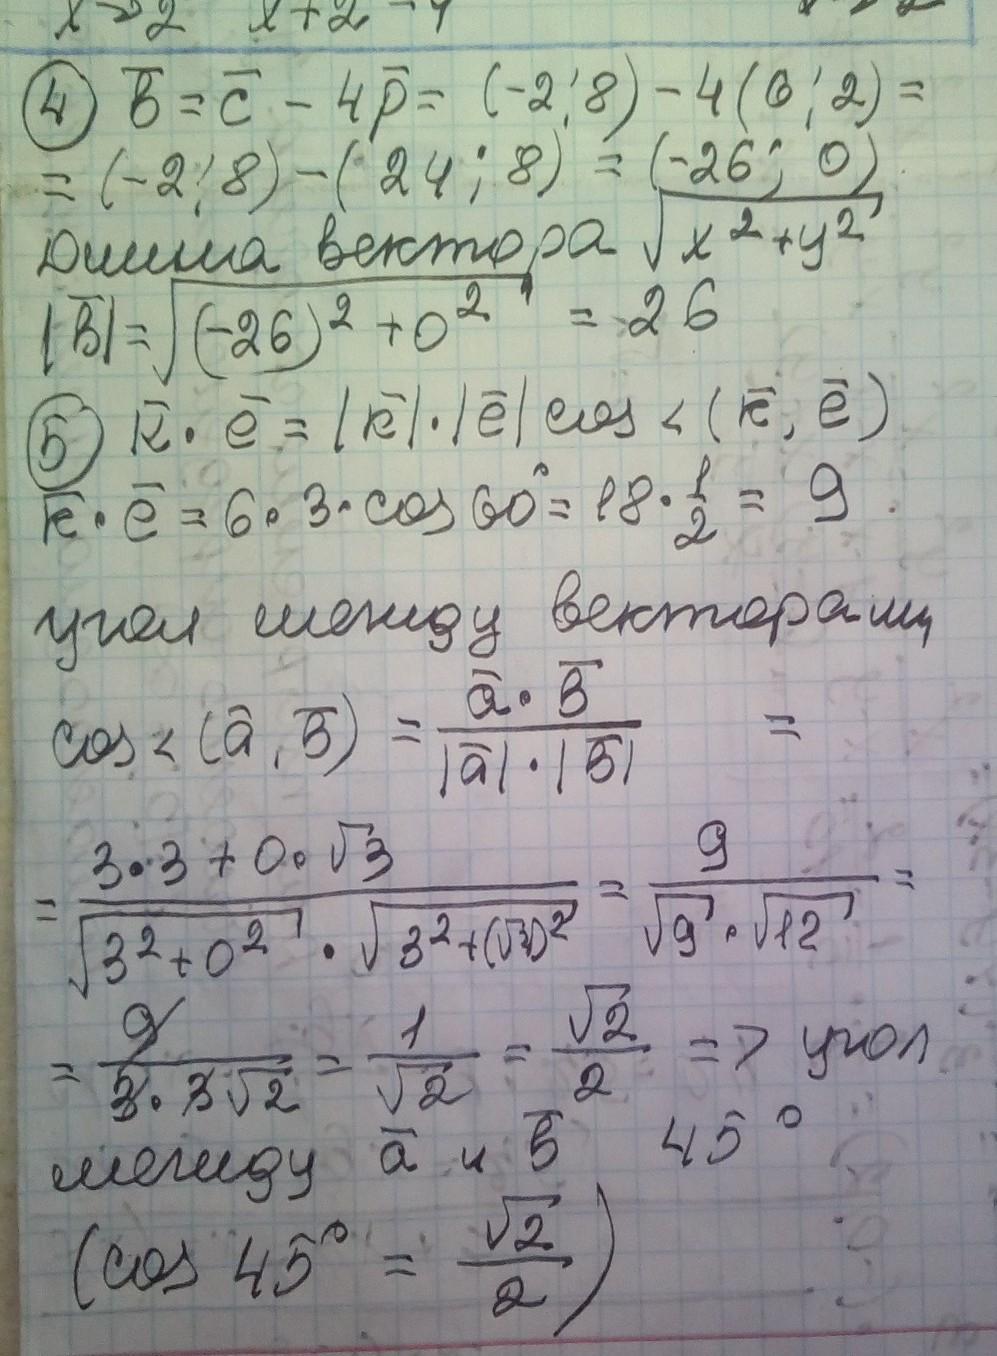 ④ b̄ = c̄ - 4p̄ = (-2; 8) - 4(6; 2) =
= (-2; 8) - (24; 8) = (-26; 0)
Длина вектора √(x² + y²)
|b̄| = √((-26)² + 0²) = 26
⑤ k̄ · ē = |k̄| · |ē| cos < (k̄, ē)
k̄ · ē = 6 · 3 · cos 60° = 18 · 1/2 = 9
угол между векторами
cos < (ā, b̄) = ā · b̄ / |ā| · |b̄| =
= 3 · 3 + 0 · √3 / √(3² + 0²) · √(3² + (√3)²) = 9 / √9 · √12 =
= 9 / 3 · 3√2 = 1/√2 = √2/2 => угол
между ā и b̄ 45°
(cos 45° = √2/2)